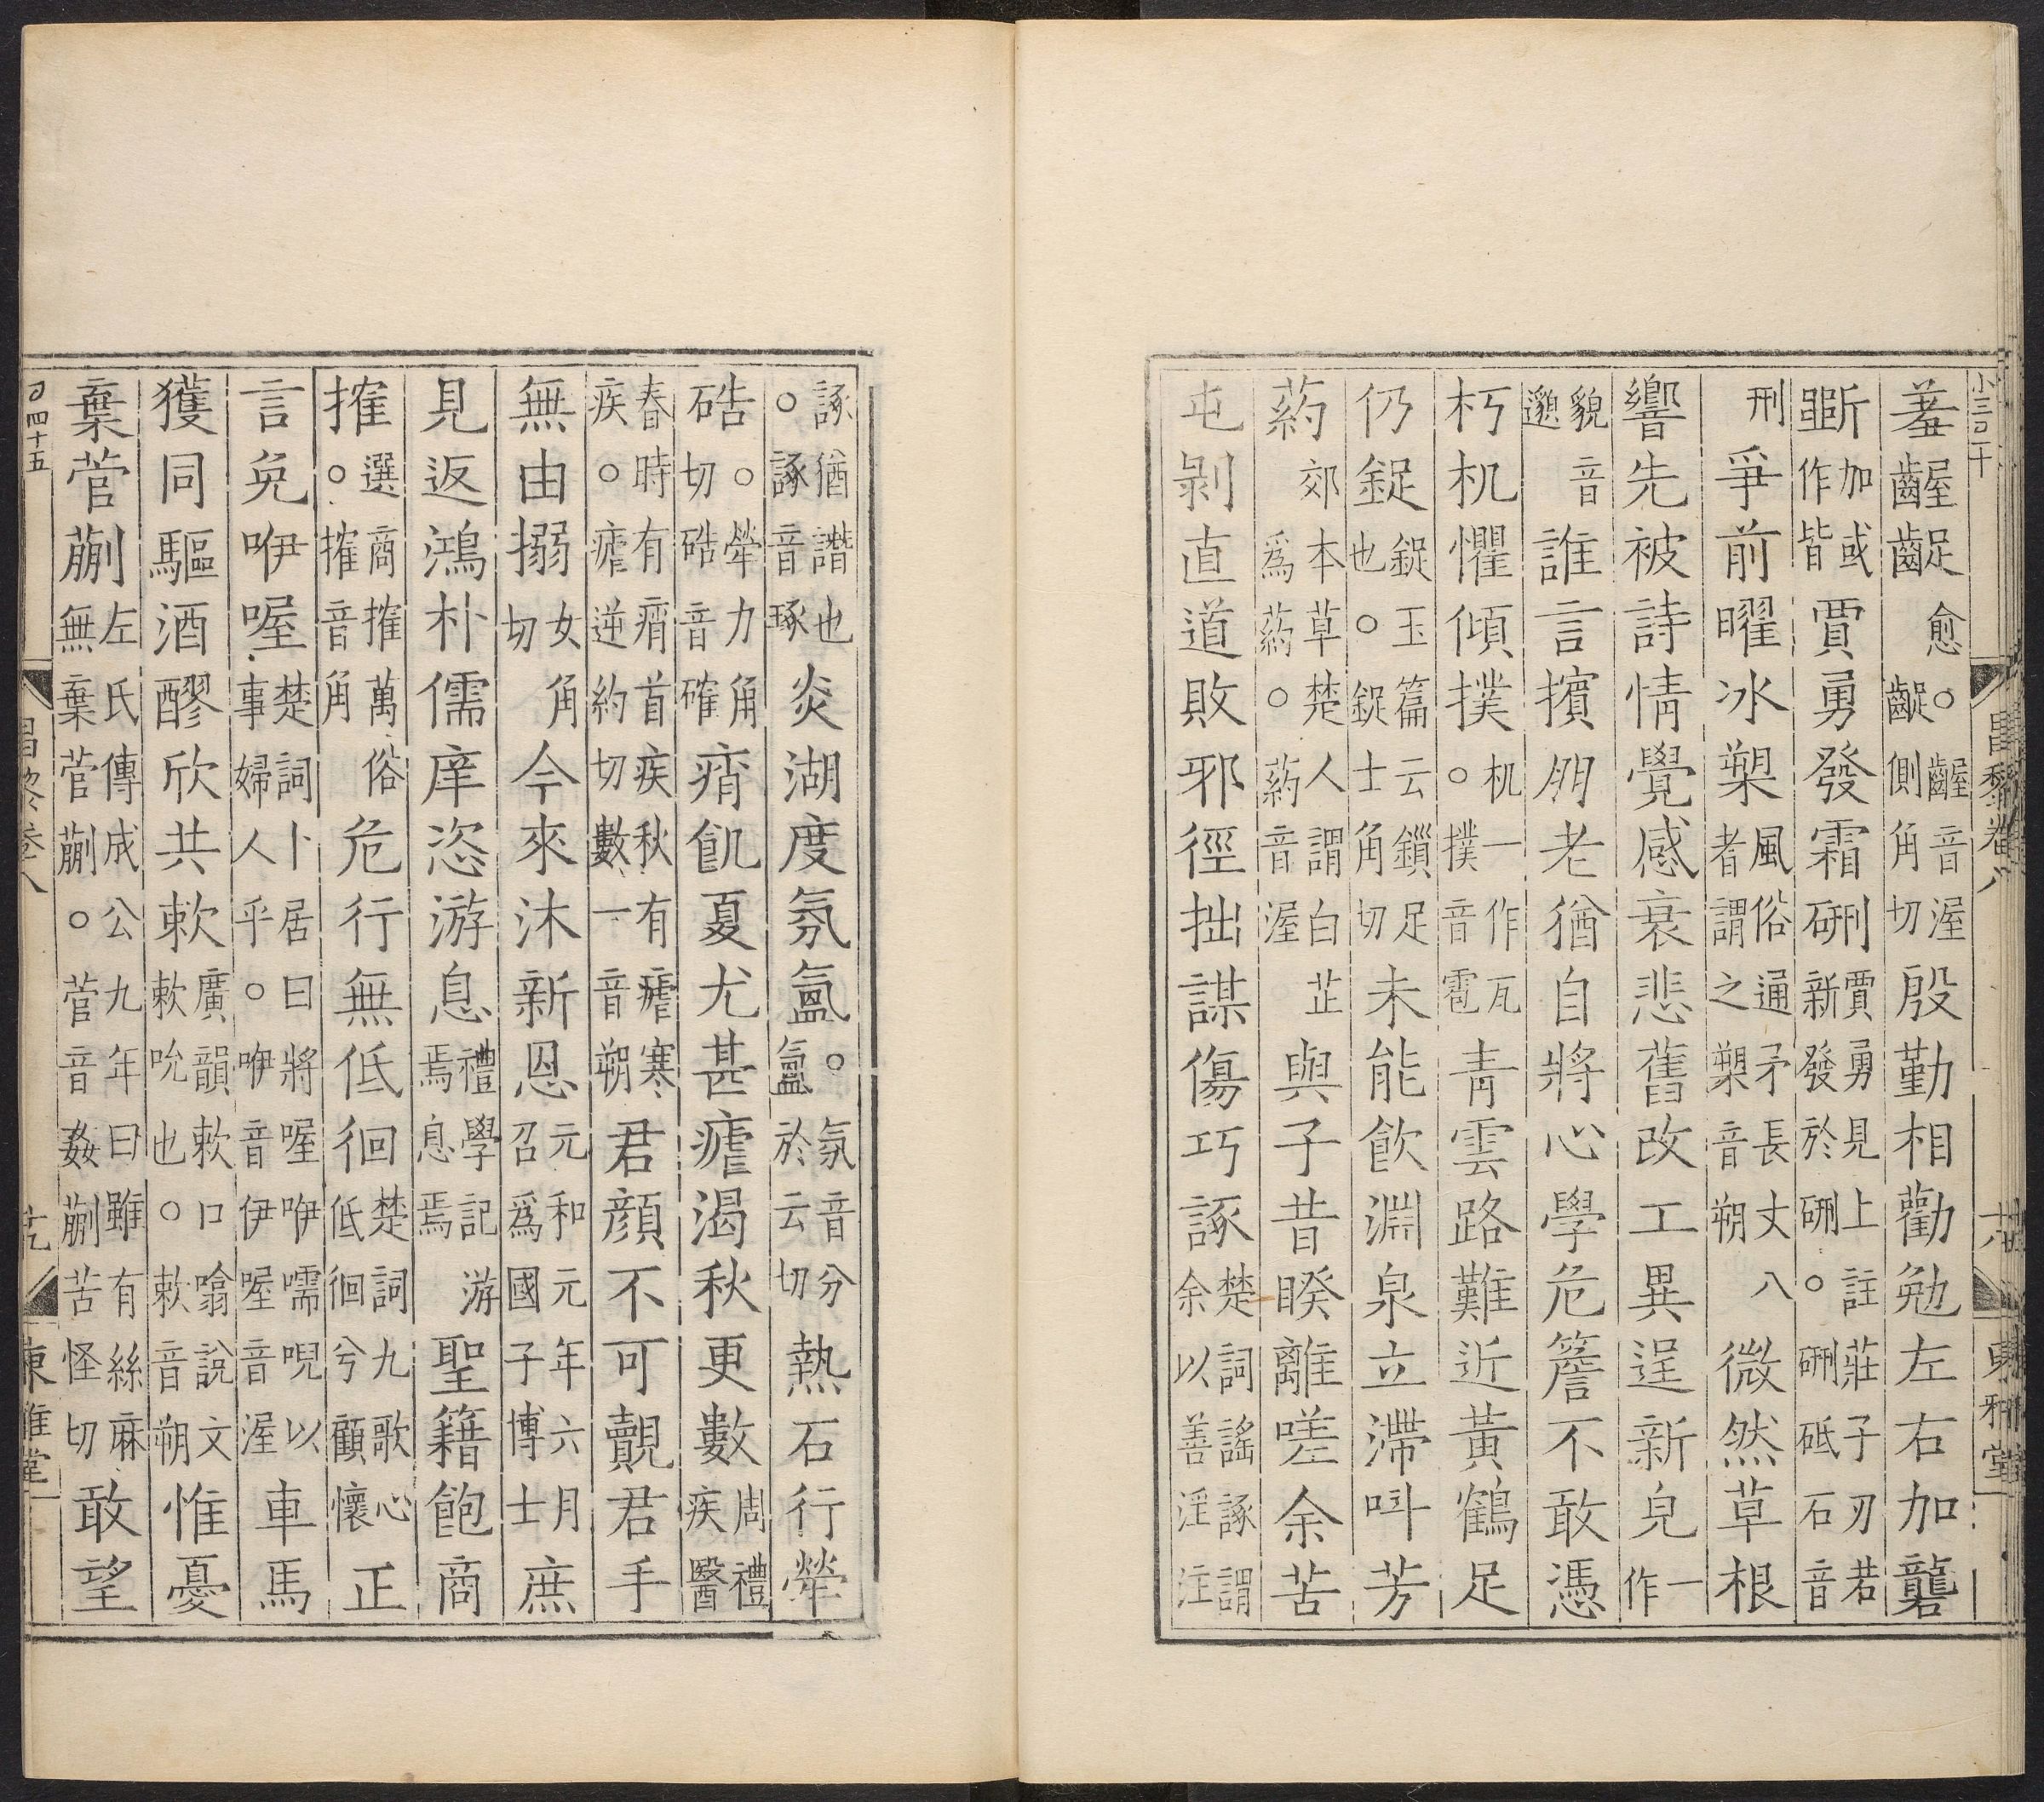 昌黎卷八 十八 東雅堂
羞齷齪愈。齷音渥齪側角切殷勤相勸勉左右加礱
斵加或作皆賈勇發霜硎賈勇見上註莊子刃若新發於硎。硎砥石音
刑爭前曜冰槊風俗通矛長丈八者謂之槊音朔微然草根
響先被詩情覺感衰悲舊改工異逞新皃一作
貌音邈誰言擯朋老猶自將心學危簷不敢憑
朽机懼傾撲机一作瓦。撲音雹青雲路難近黃鶴足
仍鋜鋜玉篇云鏁足也。鋜士角切未能飲淵泉立滯叫芳
葯郊本草楚人謂白芷爲葯。葯音渥與子昔睽離嗟余苦
屯剝直道敗邪徑拙謀傷巧諑楚詞謠諑謂余以善淫注
諑猶譖也。諑音琢炎湖度氛氳。氛音分氳於云切熱石行犖
硞。犖力角切硞音確瘠飢夏尤甚瘧渴秋更數周禮疾醫
春時有痟首疾秋有瘧寒疾。瘧逆約切數一音朔君顏不可覿君手
無由搦女角切今來沐新恩元和元年六月召爲國子博士庶
見返鴻朴儒庠恣游息禮學記游焉息焉聖籍飽商
搉選商搉萬俗。搉音角危行無低徊楚詞九歌心低徊兮顧懷正
言免咿喔楚詞卜居曰將喔咿嚅唲以事婦人乎。咿音伊喔音渥車馬
獲同驅酒醪欣共欶廣韻欶口噏說文欶吮也。欶音朔惟憂
棄菅蒯左氏傳成公九年曰雖有絲麻無棄菅蒯。菅音姦蒯苦怪切敢望
四十五 昌黎卷八 東雅堂